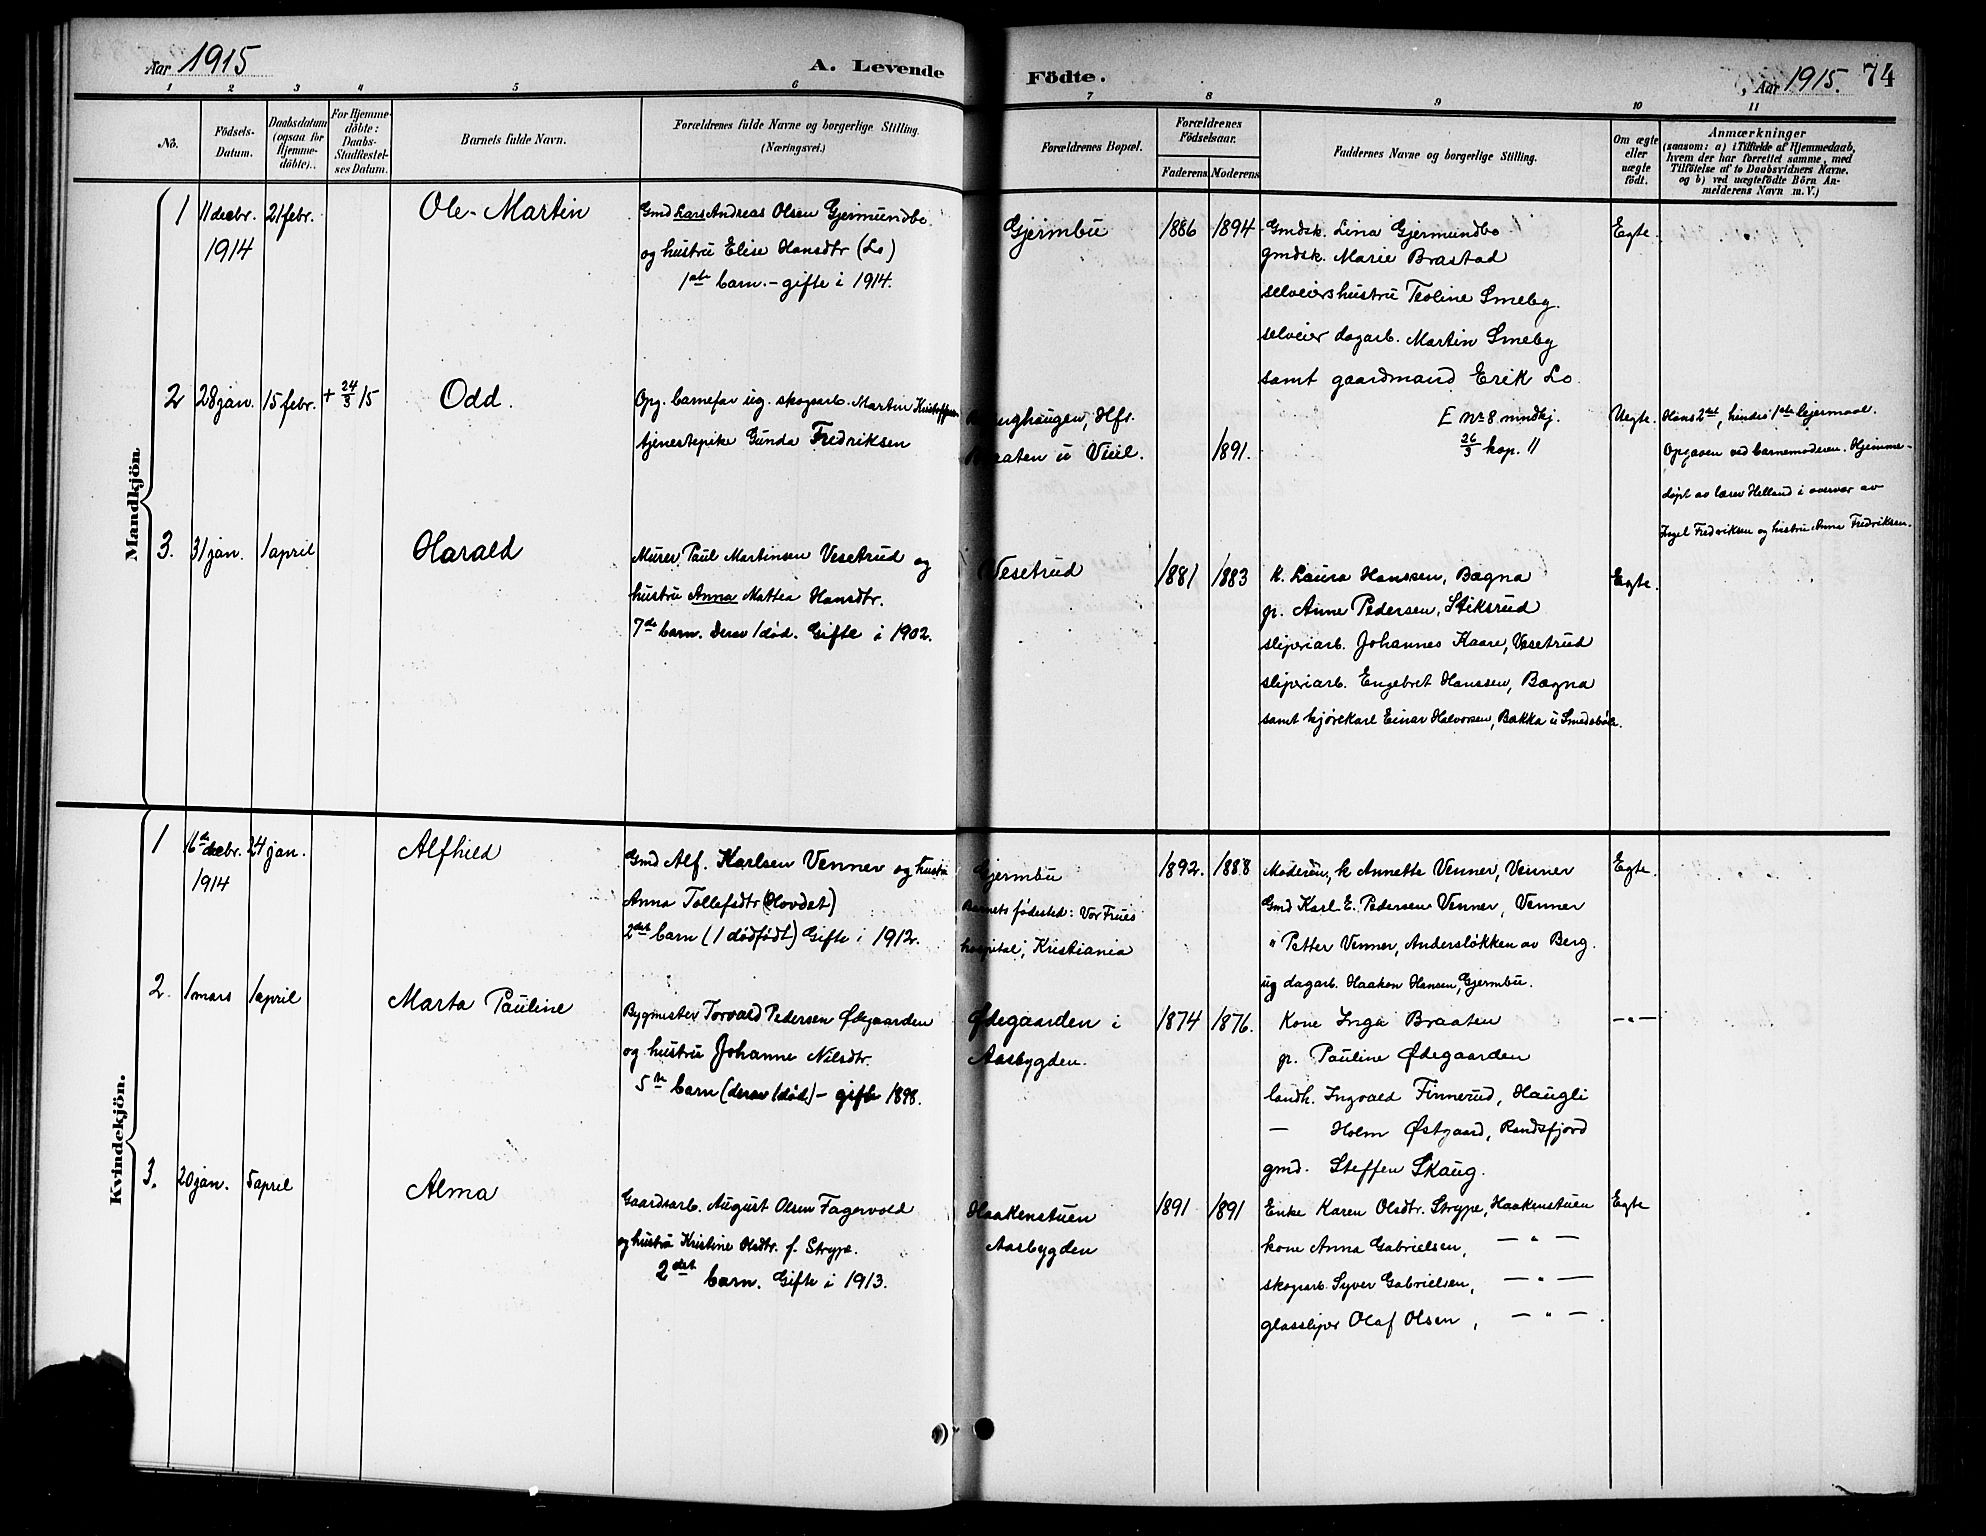 Aar 1915
A. Levende
Födte.
, Aar 1915. 74
1 2 3 4 5 6 7 8 9 10 11
No.
Födsels-
Datum.
Daabsdatum
(ogsaa for
Hjemme-
döbte).
For Hjemme-
döbte:
Daabs-
Stadfæstel-
ses Datum.
Barnets fulde Navn.
Forældrenes fulde Navne og borgerlige Stilling.
(Næringsvei.)
Forældrenes Bopæl.
Forældrenes
Födselsaar.
Faderens Moderens
Faddernes Navne og borgerlige Stilling.
Om ægte
eller
uægte
födt.
Anmærkninger
(saasom: a) i Tilfælde af Hjemmedaab,
hvem der har forrettet samme, med
Tilföielse af to Daabsvidners Navne.
og b) ved uægtefödte Börn An-
melderens Navn m. V.)
Mandkjön.
1 11 decbr. 1914
21 febr.
Ole-Martin
Gmd Lars Andreas Olsen Gjermundbo
og hustru Elise Hansdtr (Lo)
1ste barn. - gifte i 1914.
Gjermbu
1886 1894
Gmdsk. Lina Gjermundbo
gmdsk. Marie Brastad
selveiershustru Teoline Smeby.
selveier dagarb. Martin Smeby
samt gaardmand Erik Lo.
Egte.
2 28 jan. 15 febr. + 24/3 15
Odd.
Opg. barnefar ug. skogsarb. Martin
tjenestepike Gunda Fredriksen
Hfs.
Braaten u Viul.
1891.
E No 8 mindkj.
26/3 kop. 11
Uegte.
Hans 2det, hendes 1ste leiermaal.
Opgaven ved barnemoderen. Hjemme-
døpt av lærer Helland i overvær av
Ingel Fredriksen og hustru Anna Fredriksen.
3. 31 jan. 1 april
Harald
Murer Paul Martinsen Vesetrud og
hustru Anna Mathea Hansdtr.
7de barn. derav 1 død. Gifte i 1902.
Vesetrud
1881 1883
k. Laura Hanssen, Bægna
p. Anne Pedersen, Stiksrud
sliperiarb. Johannes Kaare, Vesetrud
sliperiarb. Engebret Hanssen, Bægna
samt kjørekarl Einar Halvorsen, Bakka u Smedsbøl.
Egte.
Kvindekjön.
1 16de decbr. 1914
24 jan.
Alfhild
Gmd Alf. Karlsen Venner og hustru
Anna Tollefsdtr (Hovdet)
2det barn (1 dødfødt) Gifte i 1912.
Gjermbu
Barnets fødested: Vor Frues
hospital, Kristiania
1892. 1888
Moderen, k Annette Venner, Venner
Gmd Karl E. Pedersen Venner, Venner
" Petter Venner, Andersløkken av Berg.
ug dagarb. Haakon Hansen, Gjermbu.
Egte.
2. 1 mars 1 april
Marta Pauline
Bygmester Torvald Pedersen Ødegaarden
og hustru Johanne Nilsdtr.
5te barn (derav 1 død.) - gifte 1898.
Ødegaarden i
Aasbygden.
1874 1876.
Kone Inga Braaten
p. Pauline Ødegaarden
landh. Ingvald Finnerud, Haugli
— Holm Østgaard, Randsfjord
gmd. Steffen Skaug.
— " —
3. 20 jan. 5 april
Alma
Gaardsarb. August Olsen Fagervold
og hustru Kristine Olsdtr. f. Strype.
2det barn. Gifte i 1913.
Haakenstuen
Aasbygden
1891 1891
Enke Karen Olsdtr. Strype, Haakenstuen
kone Anna Gabrielsen, — " —
skogarb. Syver Gabrielsen, — " —
glassliper Olaf Olsen, — " —
Egte